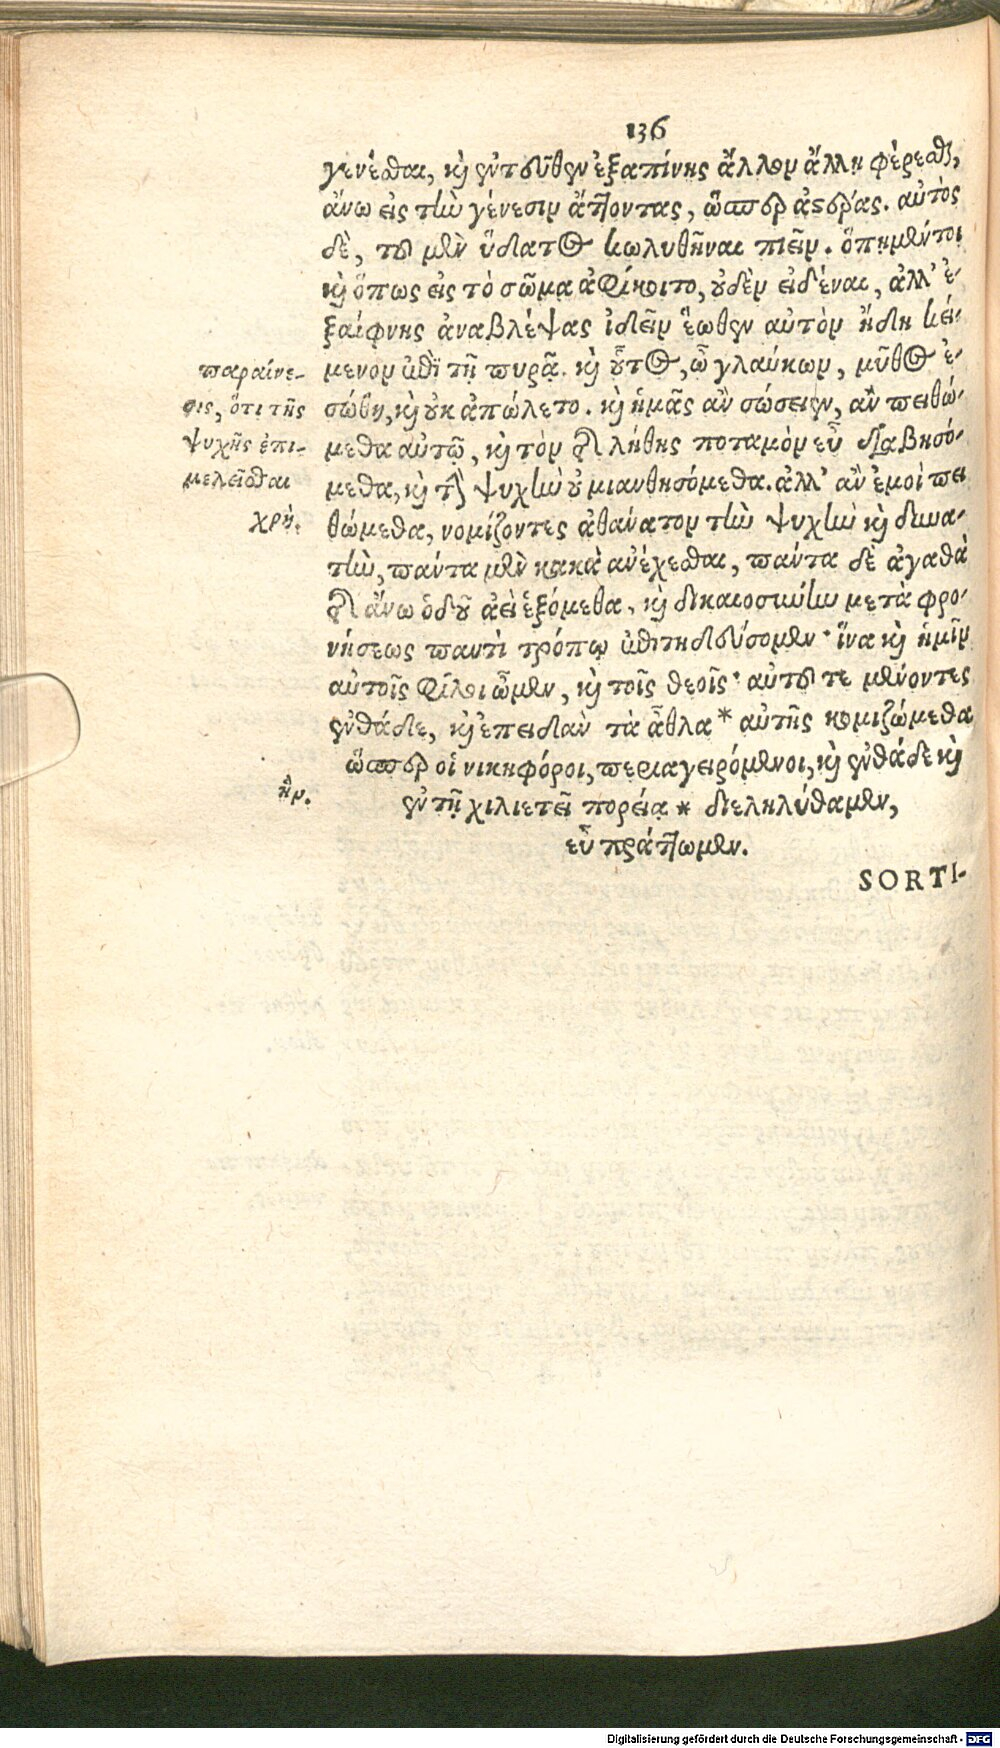 136
γενέσθαι, καὶ ἐντεῦθεν ἐξαπίνης ἄλλον ἄλλῃ φέρεσθαι,
ἄνω εἰς τὴν γένεσιν ἄττοντας, ὥσπερ ἀστέρας. αὐτὸς
δὲ, τοῦ μὲν ὕδατος κωλυθῆναι πιεῖν. ὅπῃ μέντοι
καὶ ὅπως εἰς τὸ σῶμα ἀφίκοιτο, οὐδὲν εἰδέναι, ἀλλ’ ἐ-
ξαίφνης ἀναβλέψας ἰδεῖν ἕωθεν αὐτὸν ἤδη κεί-
μενον ἐπὶ τῇ πυρᾷ. καὶ οὗτος, ὦ γλαύκων, μῦθος ἐ-
σώθη, καὶ οὐκ ἀπώλετο. καὶ ἡμᾶς ἂν σώσειεν, ἂν πειθώ-
μεθα αὐτῷ, καὶ τὸν τῆς λήθης ποταμὸν εὖ διαβησό-
μεθα, καὶ τὴν ψυχὴν οὐ μιανθησόμεθα. ἀλλ’ ἂν ἐμοὶ πει
θώμεθα, νομίζοντες ἀθάνατον τὴν ψυχὴν καὶ δυνα-
τὴν, πάντα μὲν κακὰ ἀνέχεσθαι, πάντα δὲ ἀγαθὰ
τῆς ἄνω ὁδοῦ ἀεὶ ἑξόμεθα, καὶ δικαιοσύνην μετὰ φρο-
νήσεως παντὶ τρόπῳ ἐπιτηδεύσομεν· ἵνα καὶ ἡμῖν
αὐτοῖς φίλοι ὦμεν, καὶ τοῖς θεοῖς· αὐτοῦ τε μένοντες
ἐνθάδε, καὶ ἐπειδὰν τὰ ἆθλα * αὐτῆς κομιζώμεθα
ὥσπερ οἱ νικηφόροι, περιαγειρόμενοι, καὶ ἐνθάδε καὶ
ἐν τῇ χιλιετεῖ πορείᾳ * διεληλύθαμεν,
εὖ πράττωμεν.
SORTI-
παραίνε-
σις, ὅτι τῆς
ψυχῆς ἐπι-
μελεῖσθαι
χρή.
ἣν.
Digitalisierung gefördert durch die Deutsche Forschungsgemeinschaft - DFG